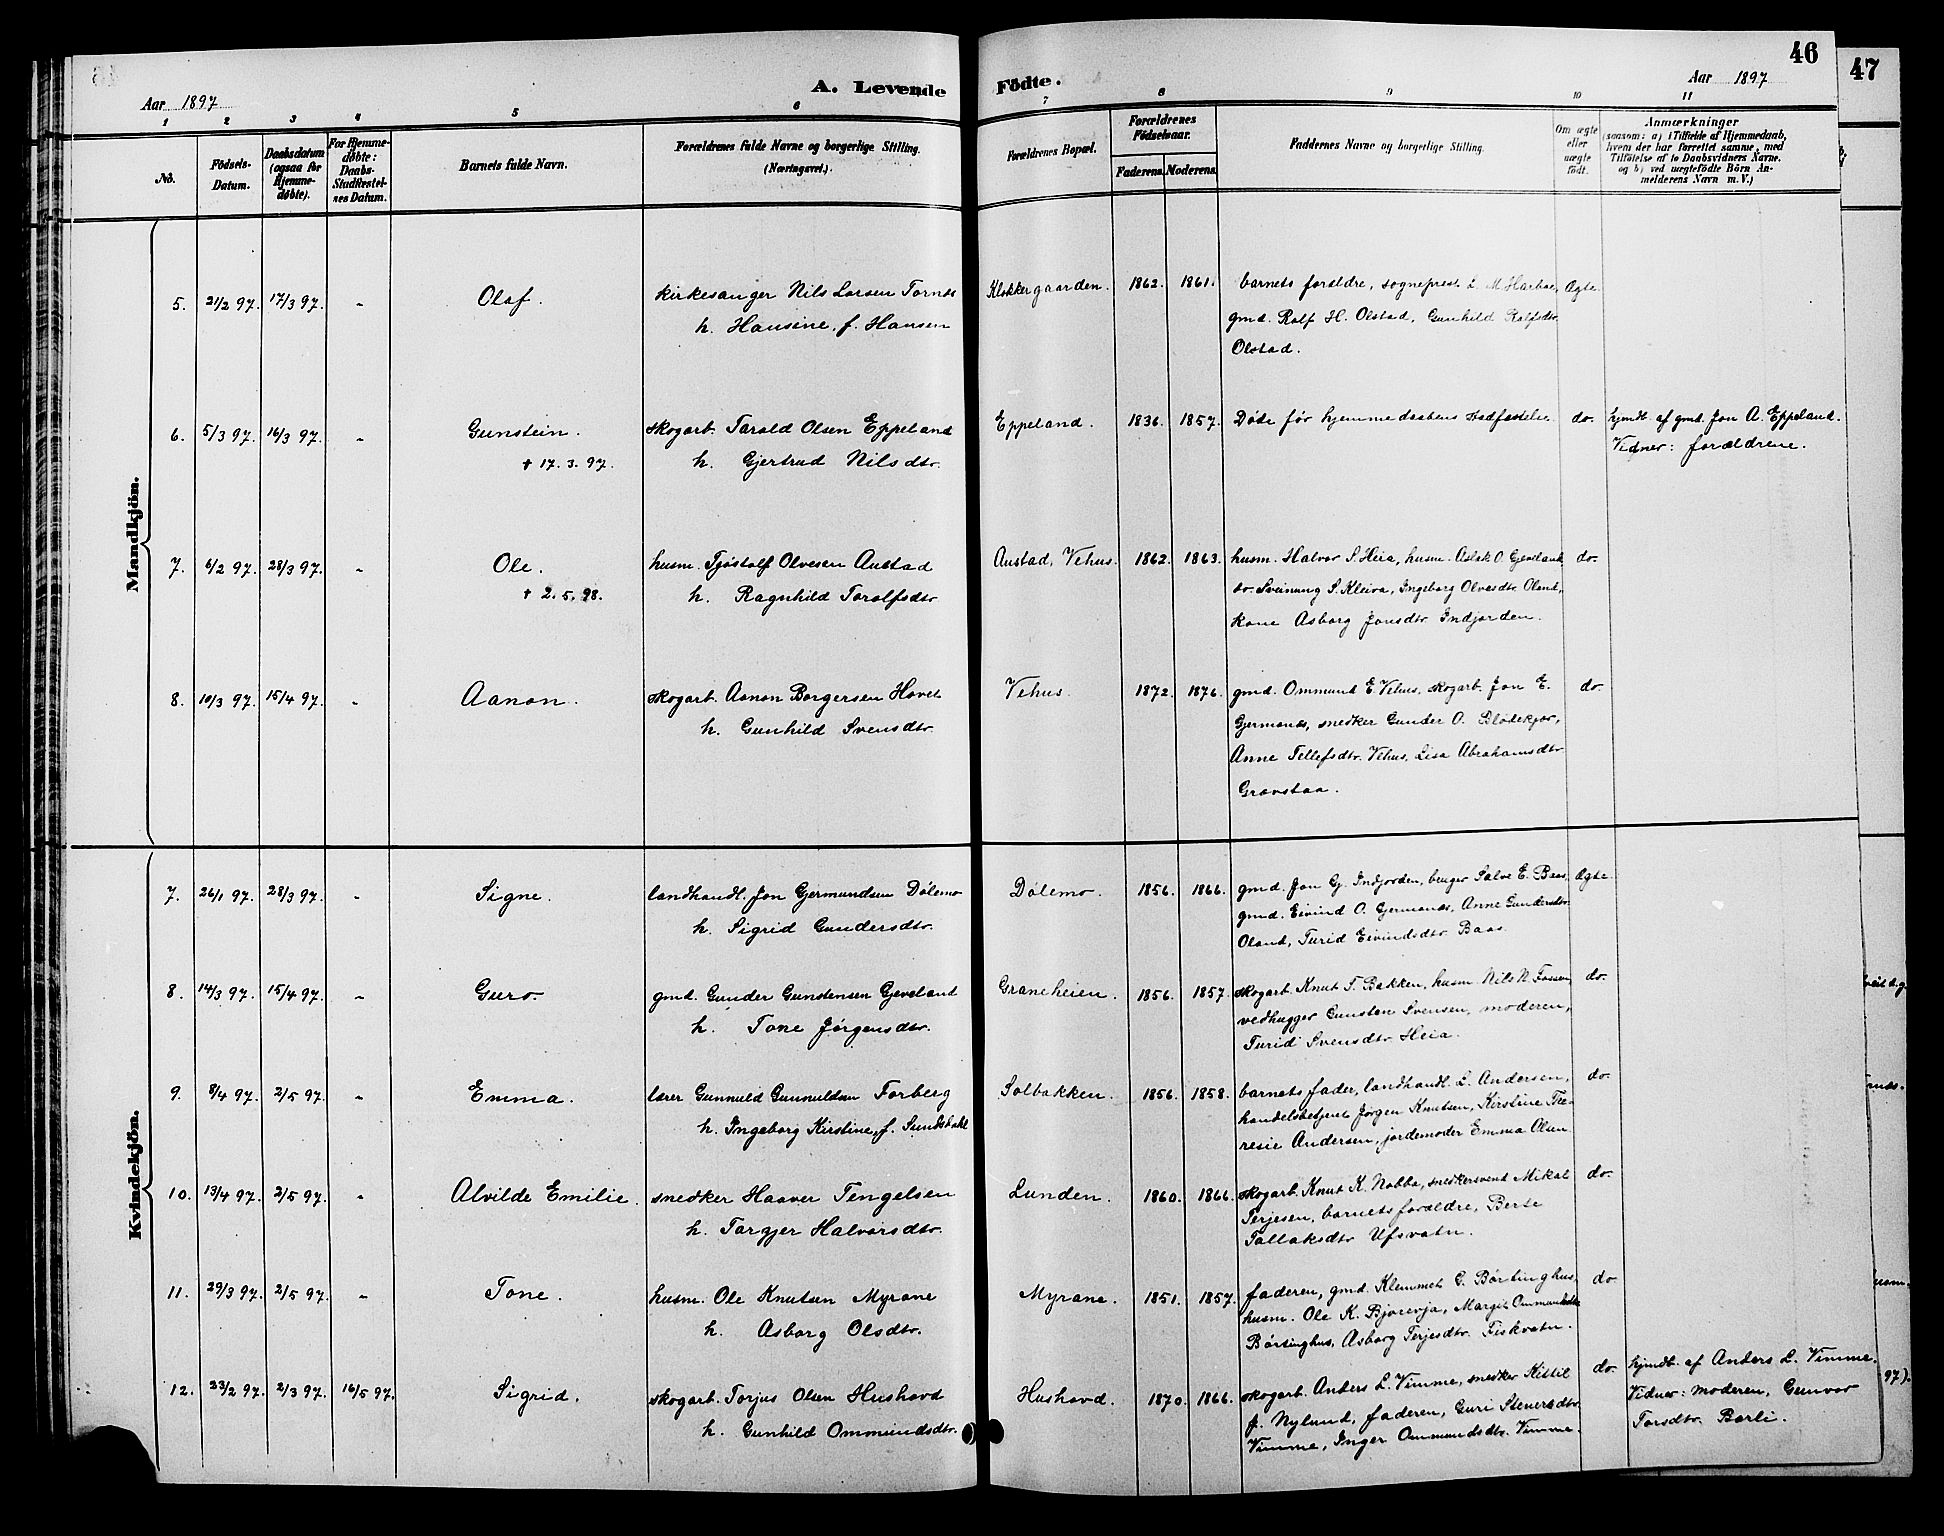 46
47
Aar 1897
A. Levende Fødte.
Aar 1897
1 2 3 4 5 6 7 8 9 10 11
No.
Födsels-Datum.
Daabsdatum (ogsaa for Hjemme-døbte).
For Hjemme-døbte: Daabs-Stadfæstel-ses Datum.
Barnets fulde Navn.
Forældrenes fulde Navne og borgerlige Stilling. (Næringsvei.)
Forældrenes Bopæl.
Forældrenes Födselsaar.
Faderens. Moderens.
Faddernes Navne og borgerlige Stilling.
Om ægte eller uægte født.
Anmærkninger
(saasom: a) i Tilfælde af Hjemmedaab,
hvem der har forrettet samme, med
Tilføielse af to Daabsvidners Navne.
og b) ved uægtefødte Börn An-
melderens Navn m. V.)
Mandkjön.
5. 21/2 97. 17/3 97. " Olaf. kirkesanger Nils Larsen Tornes Klokkergaarden. 1862. 1861. barnets forældre, sogneprest L. M. Harboe, Ægte
h. Hansine, f. Hansen gmd. Rolf H. Olstad, Gunhild Rolfsdtr.
Olstad.
6. 5/3 97. 16/3 97. " Gunstein. skogarb. Tarald Olsen Eppeland Eppeland. 1836. 1857. Døde før hjemmedaabens stadfæstelse do. hjmdb. af gmd. Jon A. Eppeland.
† 17.3.97. h. Gjertrud Nilsdtr. Vidner: forældrene.
7. 6/2 97. 28/3 97. " Ole. husm. Tjøstolf Olvesen Austad Austad, Vehus. 1862. 1863. husm. Halvor S. Heia, husm. Aslak O. Gjevland do.
† 2.5.98. h. Ragnhild Torolfsdtr. do. Sveinung S. Kleiva, Ingeborg Olvesdtr. Oland,
kone Asborg Jonsdtr. Indjorden.
8. 10/3 97. 15/4 97. " Aanon. skogarb. Aanon Borgersen Hovet Vehus. 1872. 1876. gmd. Ommund E. Vehus, skogarb. Jon E. do.
h. Gunhild Svensdtr. Gjermonæs, snedker Gunder O. Blødekjær,
Anne Tellefsdtr. Vehus, Lisa Abrahamsdtr.
Gravstaa.
Kvindekjön.
7. 26/1 97. 28/3 97. " Signe. landhandl. Jon Gjermundsen Dølemo Dølemo. 1856. 1866. gmd. Jon G. Indjorden, bruger Salve E. Baas, Ægte
h. Sigrid Gundersdtr. gmd. Eivind O. Gjermonæs, Anne Gundersdtr.
Oland, Turid Eivindsdtr. Baas.
8. 14/3 97. 15/4 97. " Guro. gmd. Gunder Gunstensen Gjeveland Graneheien. 1856. 1857. skogarb. Knut T. Bakken, husm. Nils N. Fossen do.
h. Tone Jørgensdtr. vedhugger Gunsten Svensen, moderen,
Turid Svensdtr. Heia.
9. 8/4 97. 2/5 97. " Emma. lærer Gunnuld Gunnuldsen Forberg Solbakken. 1856. 1858. barnets fader, landhandl. L. Andersen, do.
h. Ingeborg Kirstine, f. Sundsdahl handelsbetjent Jørgen Knutsen, Kirstine The-
resie Andersen, jordemoder Emma Olsen
10. 13/4 97. 2/5 97. " Alvilde Emilie. snedker Haaver Tengelsen Lunden. 1860. 1866. skogarb. Knut K. Nabba, snedkersvend Mikal do.
h. Targjer Halvorsdtr. Terjesen, barnets forældre, Berte
Tallaksdtr. Ufsvatn.
11. 29/3 97. 2/5 97. " Tone. husm. Ole Knutsen Myrane Myrane. 1851. 1857. faderen, gmd. Klemmet G. Børtinghus, do
h. Asborg Olsdtr. husm. Ole K. Bjorevja, Margit Ommundsdtr.
Børtinghus, Asborg Terjesdtr. Fiskvatn.
12. 23/2 97. 2/3 97. 16/5 97. Sigrid. skogarb. Torjus Olsen Hushovd Hushovd. 1870. 1866. skogarb. Anders L. Vimme, snedker Kittil do hjmdb. af Anders L. Vimme.
h. Gunhild Ommundsdtr. J. Nylund, faderen, Guri Stenersdtr. Vidner: moderen, Gunvor
Vimme, Inger Ommundsdtr. Vimme. Torsdtr. Barli.
97).